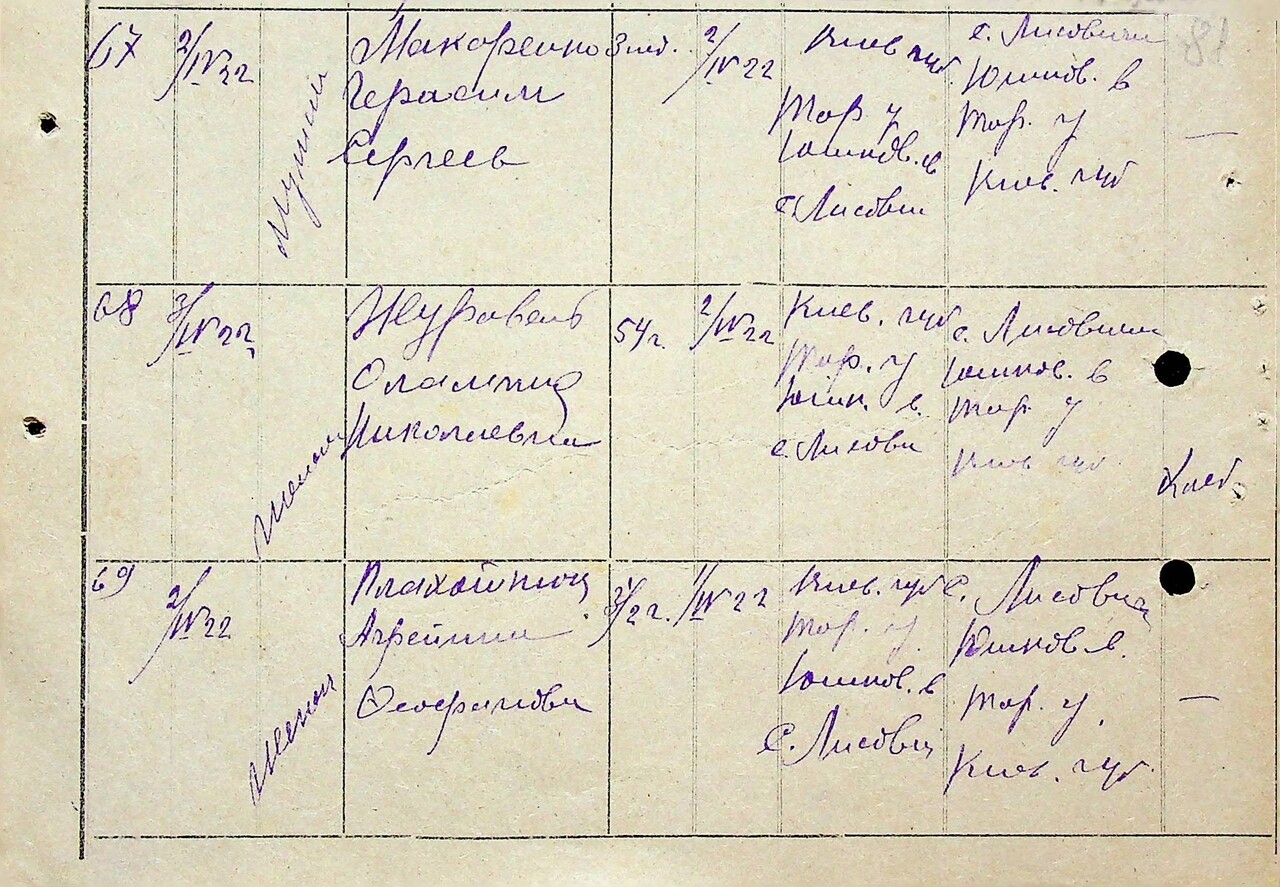 81
67
2/IV 22
Мужчин
Макаренко
Герасим
Сергеев
3 мес.
2/IV 22
Киев губ.
Тар. у
Юшков. в
с. Лисович
с. Лисовичи
Юшков. в
Тар. у
Киев. губ
—
68
2/IV 22
Женщ
Журавель
Олампид
Николаевна
54 г.
2/IV 22
Киев. губ
Тар. у
Юшк. в.
с. Лисови
с. Лисовичи
Юшков. в
Тар. у
Киев губ.
69
2/IV 22
Женщ
Агрепина
Феофанова
1/2 г.
1/IV 22
Киев. губ
Тар. у.
Юшков. в
с. Лисович
с. Лисович
Юшков. в.
Тар. у.
Киев. губ.
—